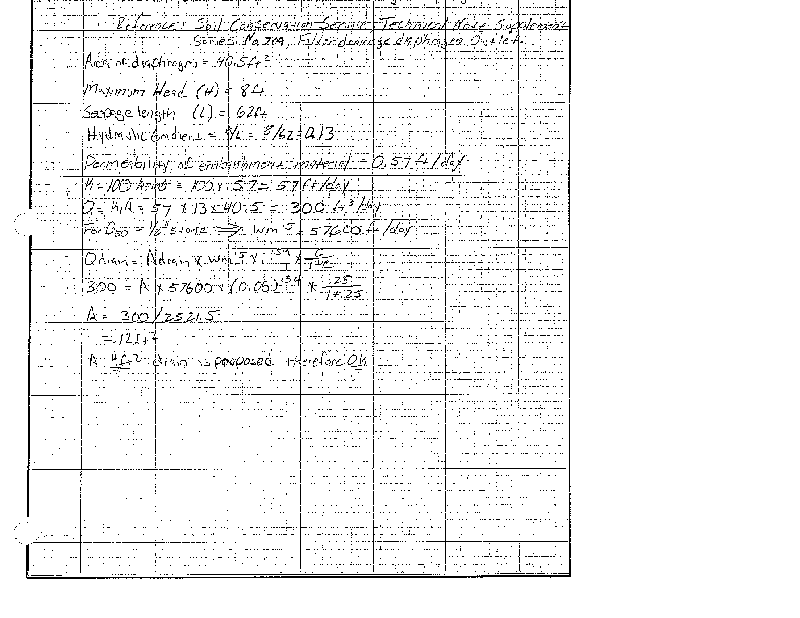 Reference: Soil Conservation Service, Technical Note Supplement
Series No. 709, Filter drainage diaphragm Outlet.
Area of diaphragm = 40.5 ft²
Maximum Head (H) = 8 ft
Seepage length (L) = 62 ft
Hydraulic Gradient = H/L = 8/62 = 0.13
Permeability of embankment material = 0.57 ft/day
= 100 × .57 = 57 ft/day
Q = kiA = 57 × .13 × 40.5 = 300 ft³/day
For D50 = 1/2" stone ⟹ Wm = 57600 ft/day
Qdrain = Adrain × Wm × i^.54 ×
300 = A × 57600 × (0.06)^.54 × .25/1+.25
A = 300/2521.5
= .12 ft²
A 4 ft² drain is proposed therefore OK